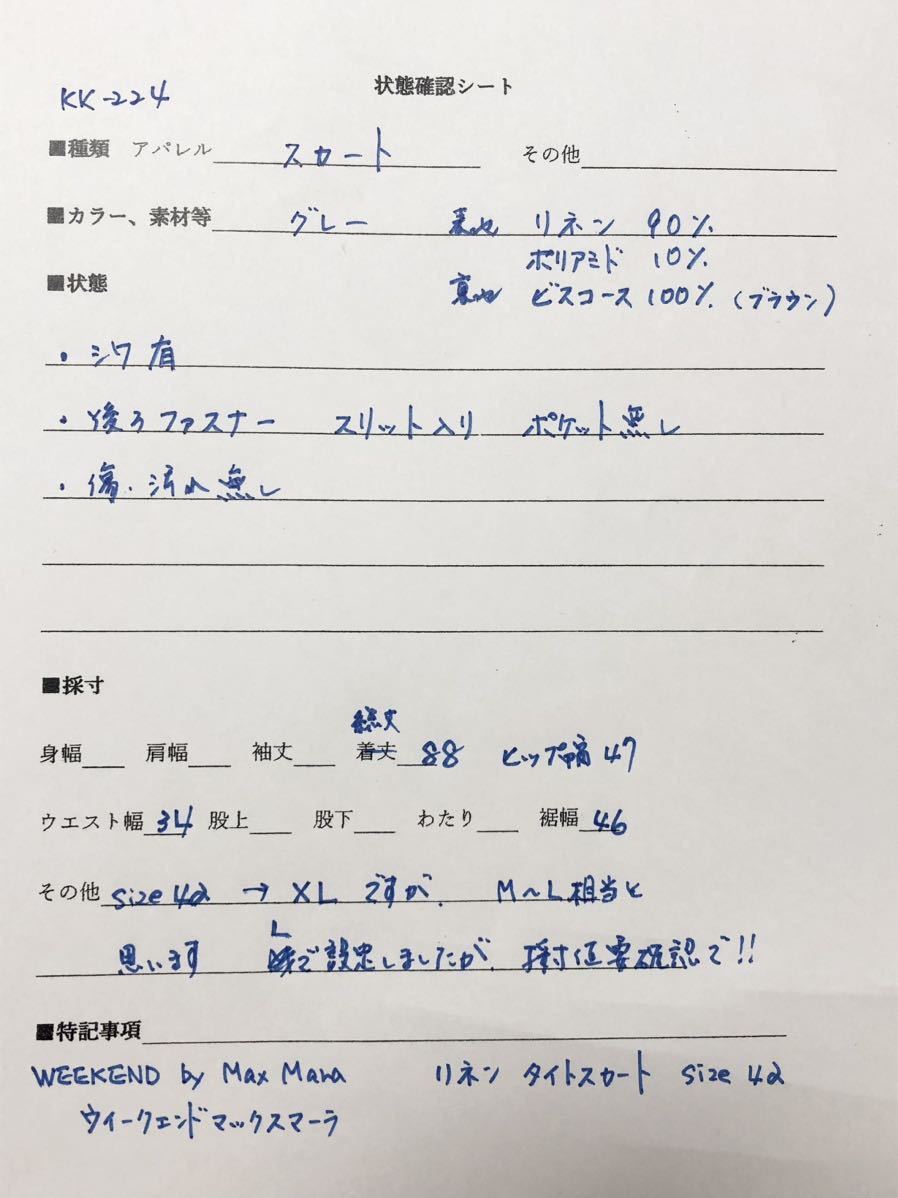 状態確認シート
KK-224
■種類 アパレル スカート その他
■カラー、素材等 グレー 表地 リネン 90%
ポリアミド 10%
■状態
裏地 ビスコース 100% (ブラウン)
・シワ有
・後ろファスナー スリット入り ポケット無し
・傷・汚れ無し
■採寸
総丈
身幅 肩幅 袖丈 着丈 88 ヒップ幅 47
ウエスト幅 34 股上 股下 わたり 裾幅 46
その他 size 42 → XL ですが、 M〜L相当と
L
思います で設定しましたが、採寸値要確認で!!
■特記事項
WEEKEND by Max Mara リネン タイトスカート size 42
ウイークエンドマックスマーラ